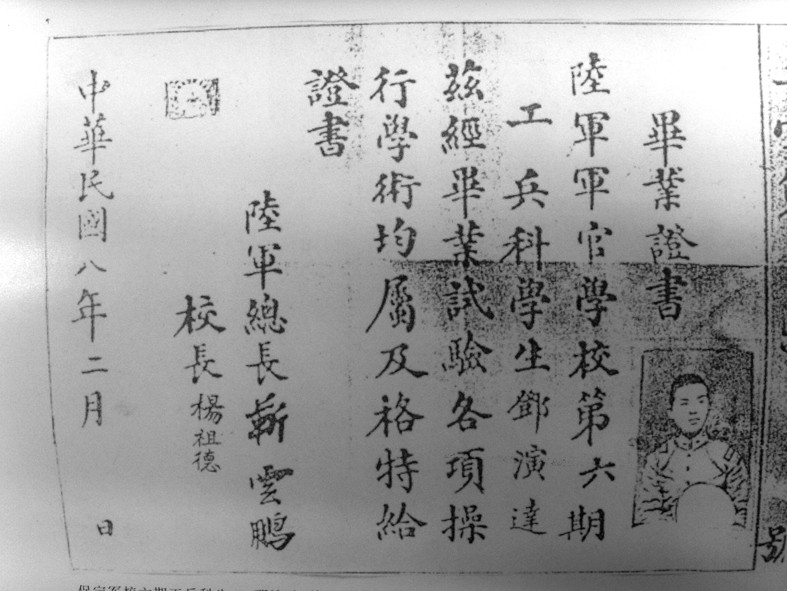 畢業證書
陸軍軍官學校第六期
工兵科學生鄧演達
茲經畢業試驗各項操
行學術均屬及格特給
證書
陸軍總長靳雲鵬
校長楊祖德
中華民國八年二月 日
號